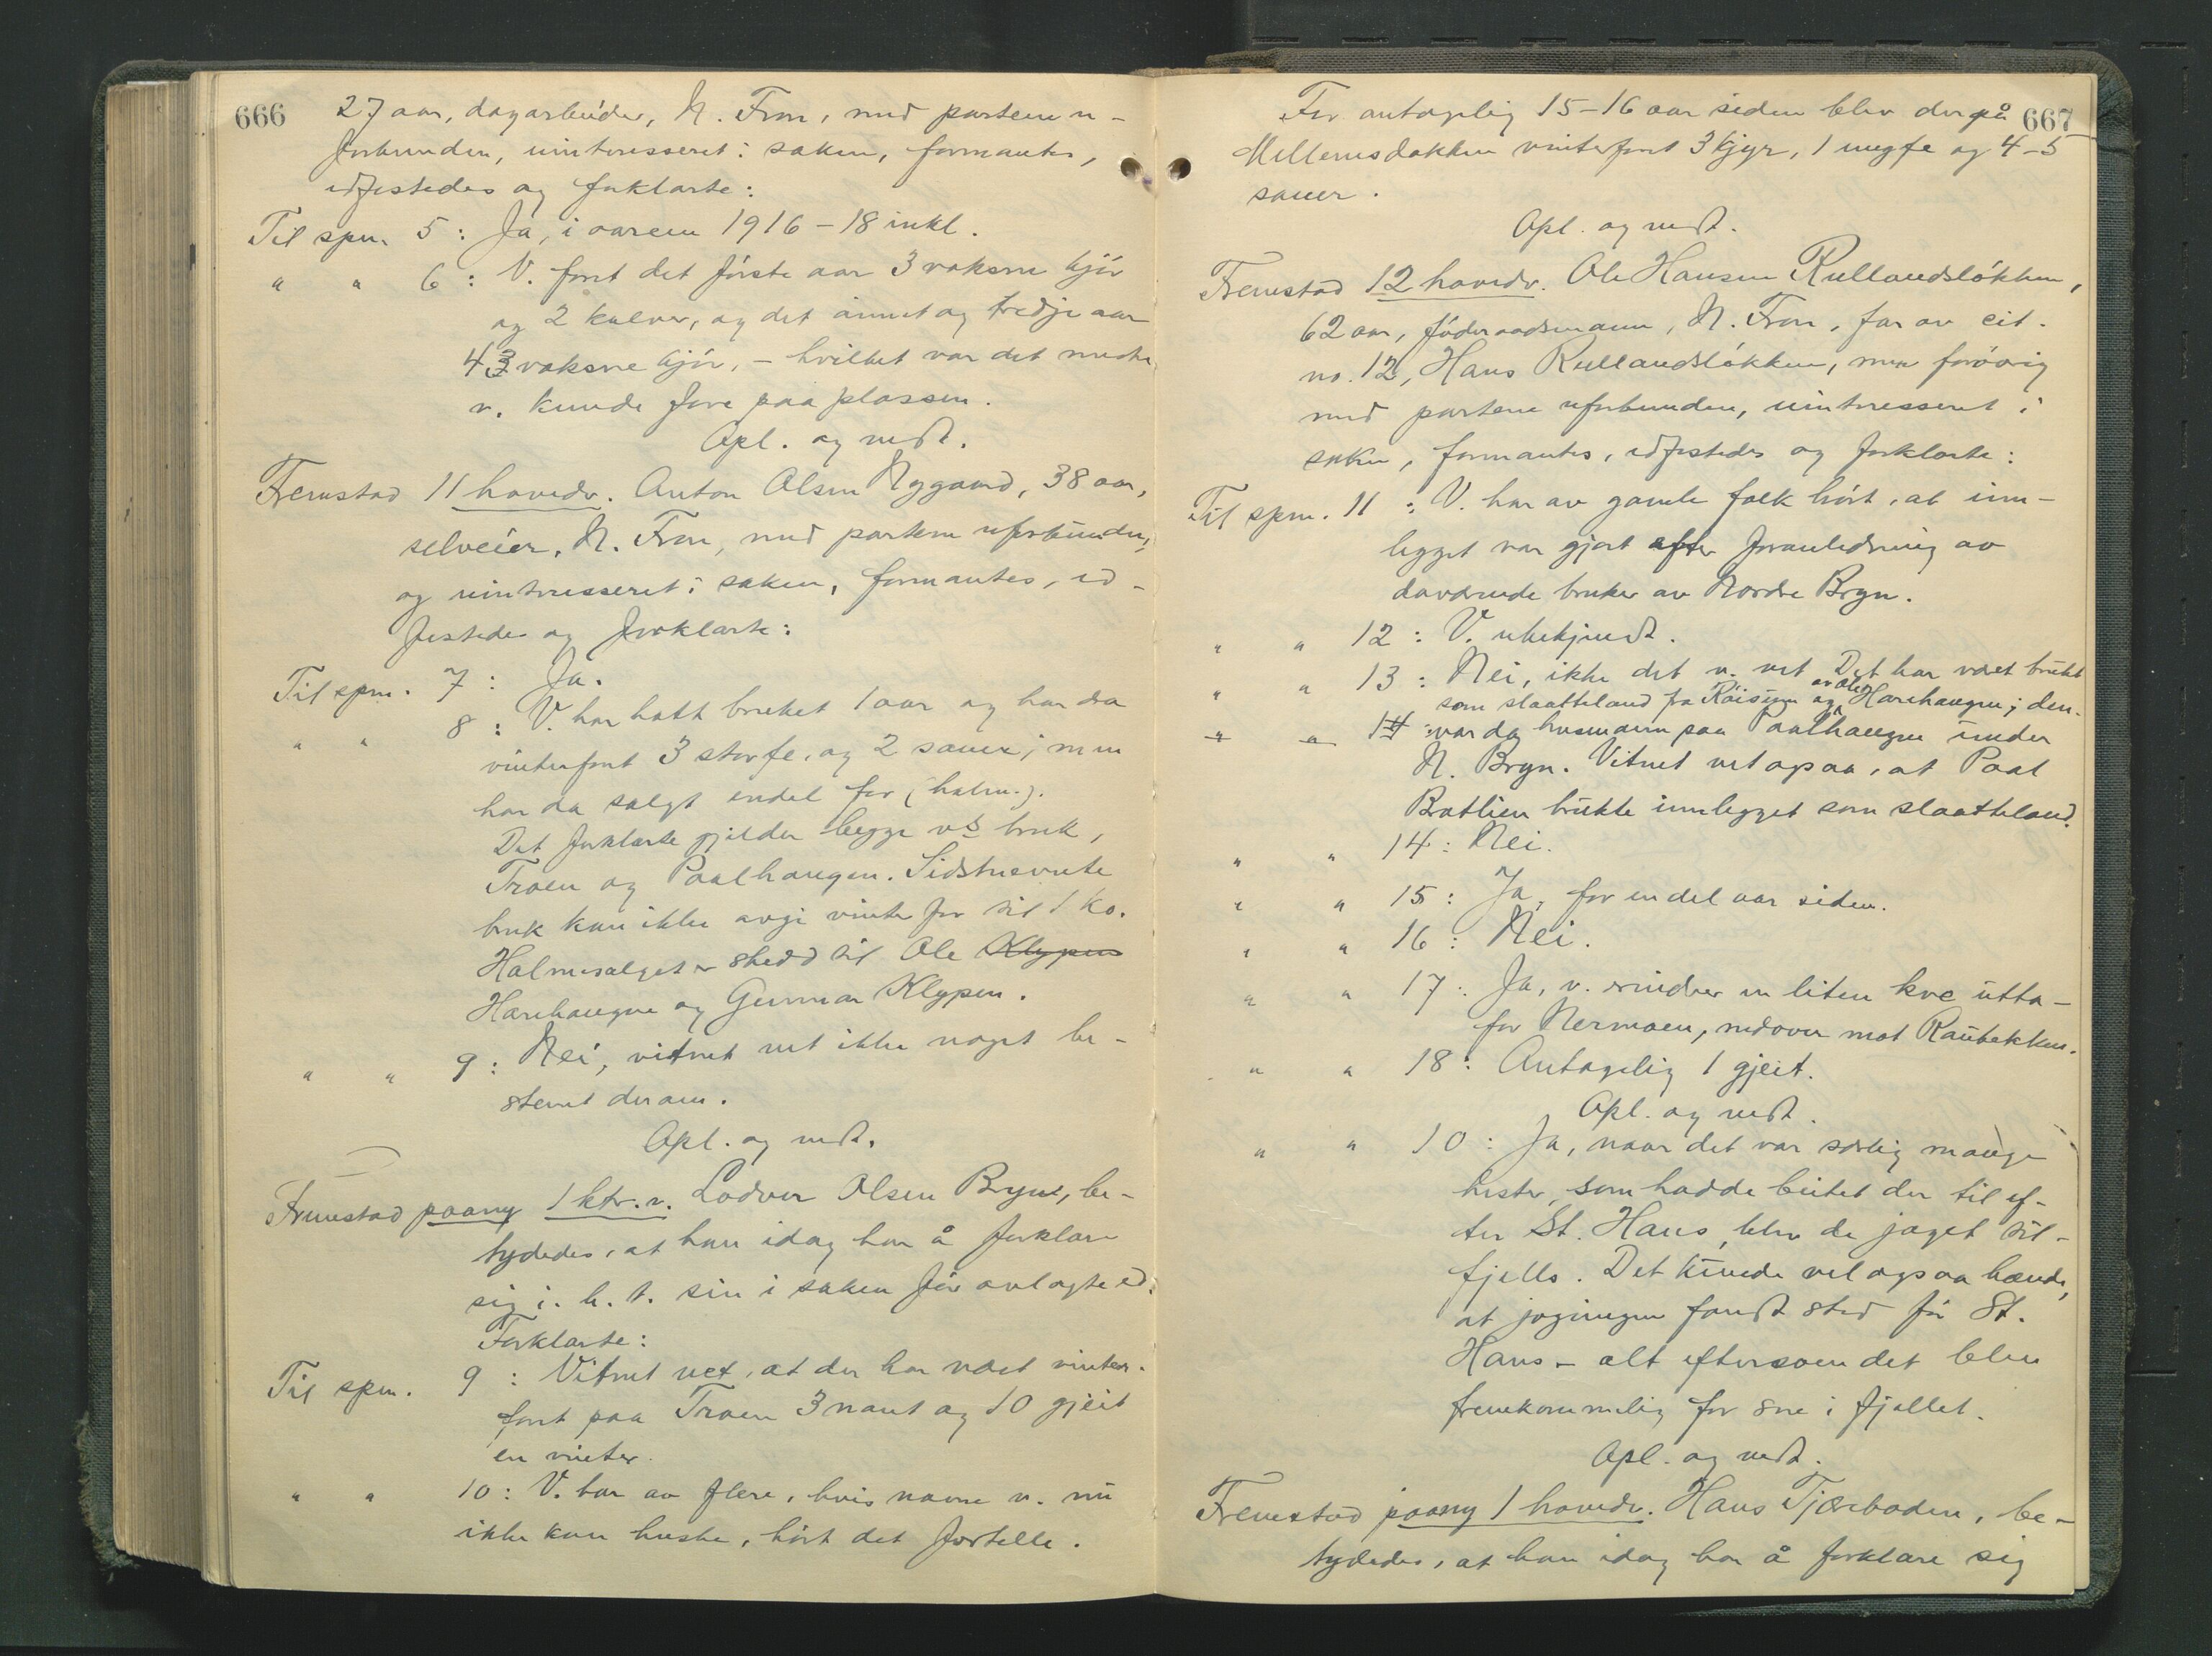 666
27 aar, dagarbeider, N. Fron, med partene u-
forbunden, uinteresseret i saken, formantes,
edfestedes og forklarte:
Til spm. 5: Ja, i aarene 1916-18 inkl.
" " 6: V. foret det første aar 3 voksne kjør
og 2 kalver, og det annet og tredje aar
4 voksne kjør, - hvilket var det meste
v. kunde fore paa plassen.
Opl. og vedt.
Fremstod 11 hovedv. Anton Olsen Nygaard, 38 aar,
selveier, N. Fron, med partene uforbunden,
og uinteresseret i saken, formantes, ed-
festedes og forklarte:
Til spm. 7: Ja.
" " 8: V. har hatt bruket 1 aar og har da
vinterforet 3 storfe, og 2 sauer; men
har da solgt endel for (halm.).
Det forklarte gjelder begge v.s bruk,
Troen og Paalhaugen. Sidstnevnte
bruk kan ikke avgi vinterfor til 1 ko.
Halmsalget er skedd til Ole Klypen
Harehaugen og Gunnar Klypen.
" " 9: Nei, vitnet vet ikke noget be-
stemt derom.
Opl. og vedt.
Fremstod paany 1 ktr.v. Lodver Olsen Bryn, be-
tydedes, at han idag har å forklare
sig i. h. t. sin i saken før avlagte ed.
Forklarte:
Til spm. 9: Vitnet vet, at der har været vinter-
foret paa Troen 3 naut og 10 gjeit
en vinter.
" " 10: V. har av flere, hvis navne v. nu
ikke kan huske, hørt det fortelle.
667
For antagelig 15-16 aar siden blev der på
Mellemsdokken vinterforet 3 kjyr, 1 ungfe og 4-5
sauer.
Opl. og vedt.
Fremstod 12 hovedv. Ole Hansen Rullandsløkken,
62 aar, føderaadsmann, N. Fron, far av cit.
no. 12, Hans Rullandsløkken, men forøvrig
med partene uforbunden, uinteresseret i
saken, formantes, edfestedes og forklarte:
Til spm. 11: V. har av gamle folk hørt, at inn-
legget var gjort efter foranledning av
daværende bruker av Nordre Bryn.
" " 12: V. ubekjendt.
" " 13: Nei, ikke det v. vet. Det har været brukt
som slaatteland fra Røisgen og av Ole Harehaugen; den-
" " 14: var da husmann paa Paalhaugen under
N. Bryn. Vitnet vet ogsaa, at Paal
Bratlien brukte innlegget som slaatteland.
" " 14: Nei.
" " 15: Ja, for endel aar siden.
" " 16: Nei.
" " 17: Ja, v. erindrer en liten kve utta-
for Nermoen, nedover mot Raubekken.
" " 18: Antagelig 1 gjeit.
Opl. og vedt.
" " 10: Ja, naar det var særlig mange
hester, som hadde beitet der til ef-
ter St. Hans, blev de jaget til-
fjells. Det kunde vel ogsaa hænde,
at jagingen fandt sted før St.
Hans - alt eftersom det blev
fremkommelig for sne i fjellet.
Opl. og vedt.
Fremstod paany 1 hovedv. Hans Tjæreboden, be-
tydedes, at han idag har å forklare sig